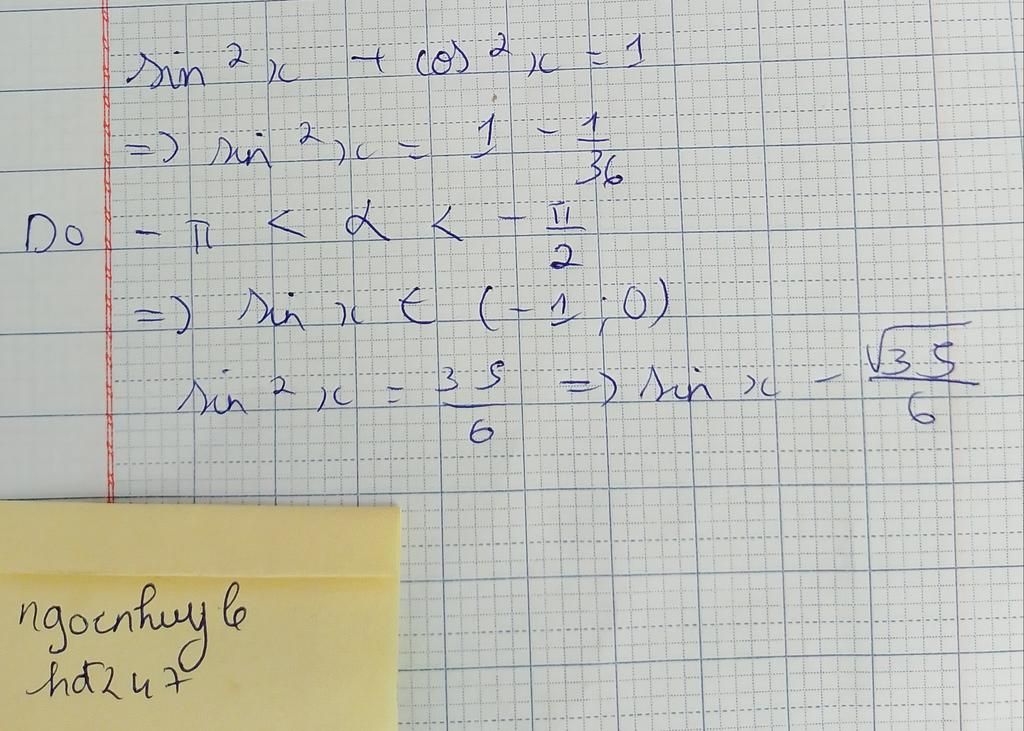 sin²x + cos²x = 1
=> sin²x = 1 - 1/36
Do -π < α < -π/2
=> sin x ∈ (-1; 0)
sin²x = 35/6 => sin x - √35/6
ngocnhuy6
hd247